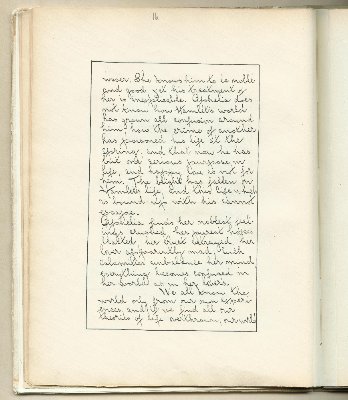 16
wooer. She knows him to be noble
and good yet his treatment of
her is inexplicable. Ophelia does
not know how Hamlet's world
has grown all confusion around
him; how the crime of another
has poisoned his life at the
spring, and that now he has
but one serious purpose in
life, and happy love is not for
him. The blight has fallen on
Hamlet's life, and this life which
is bound up with his cannot
escape.
Ophelia finds her noblest feel-
ings crushed, her purest hopes
her trust betrayed, her
lover apparently mad. Such
calamities unbalance her mind
everything becomes confused in
her world as in her lover's.
We all know the
world only from our own experi-
ences, and if we find all our
theories of life overthrown, our